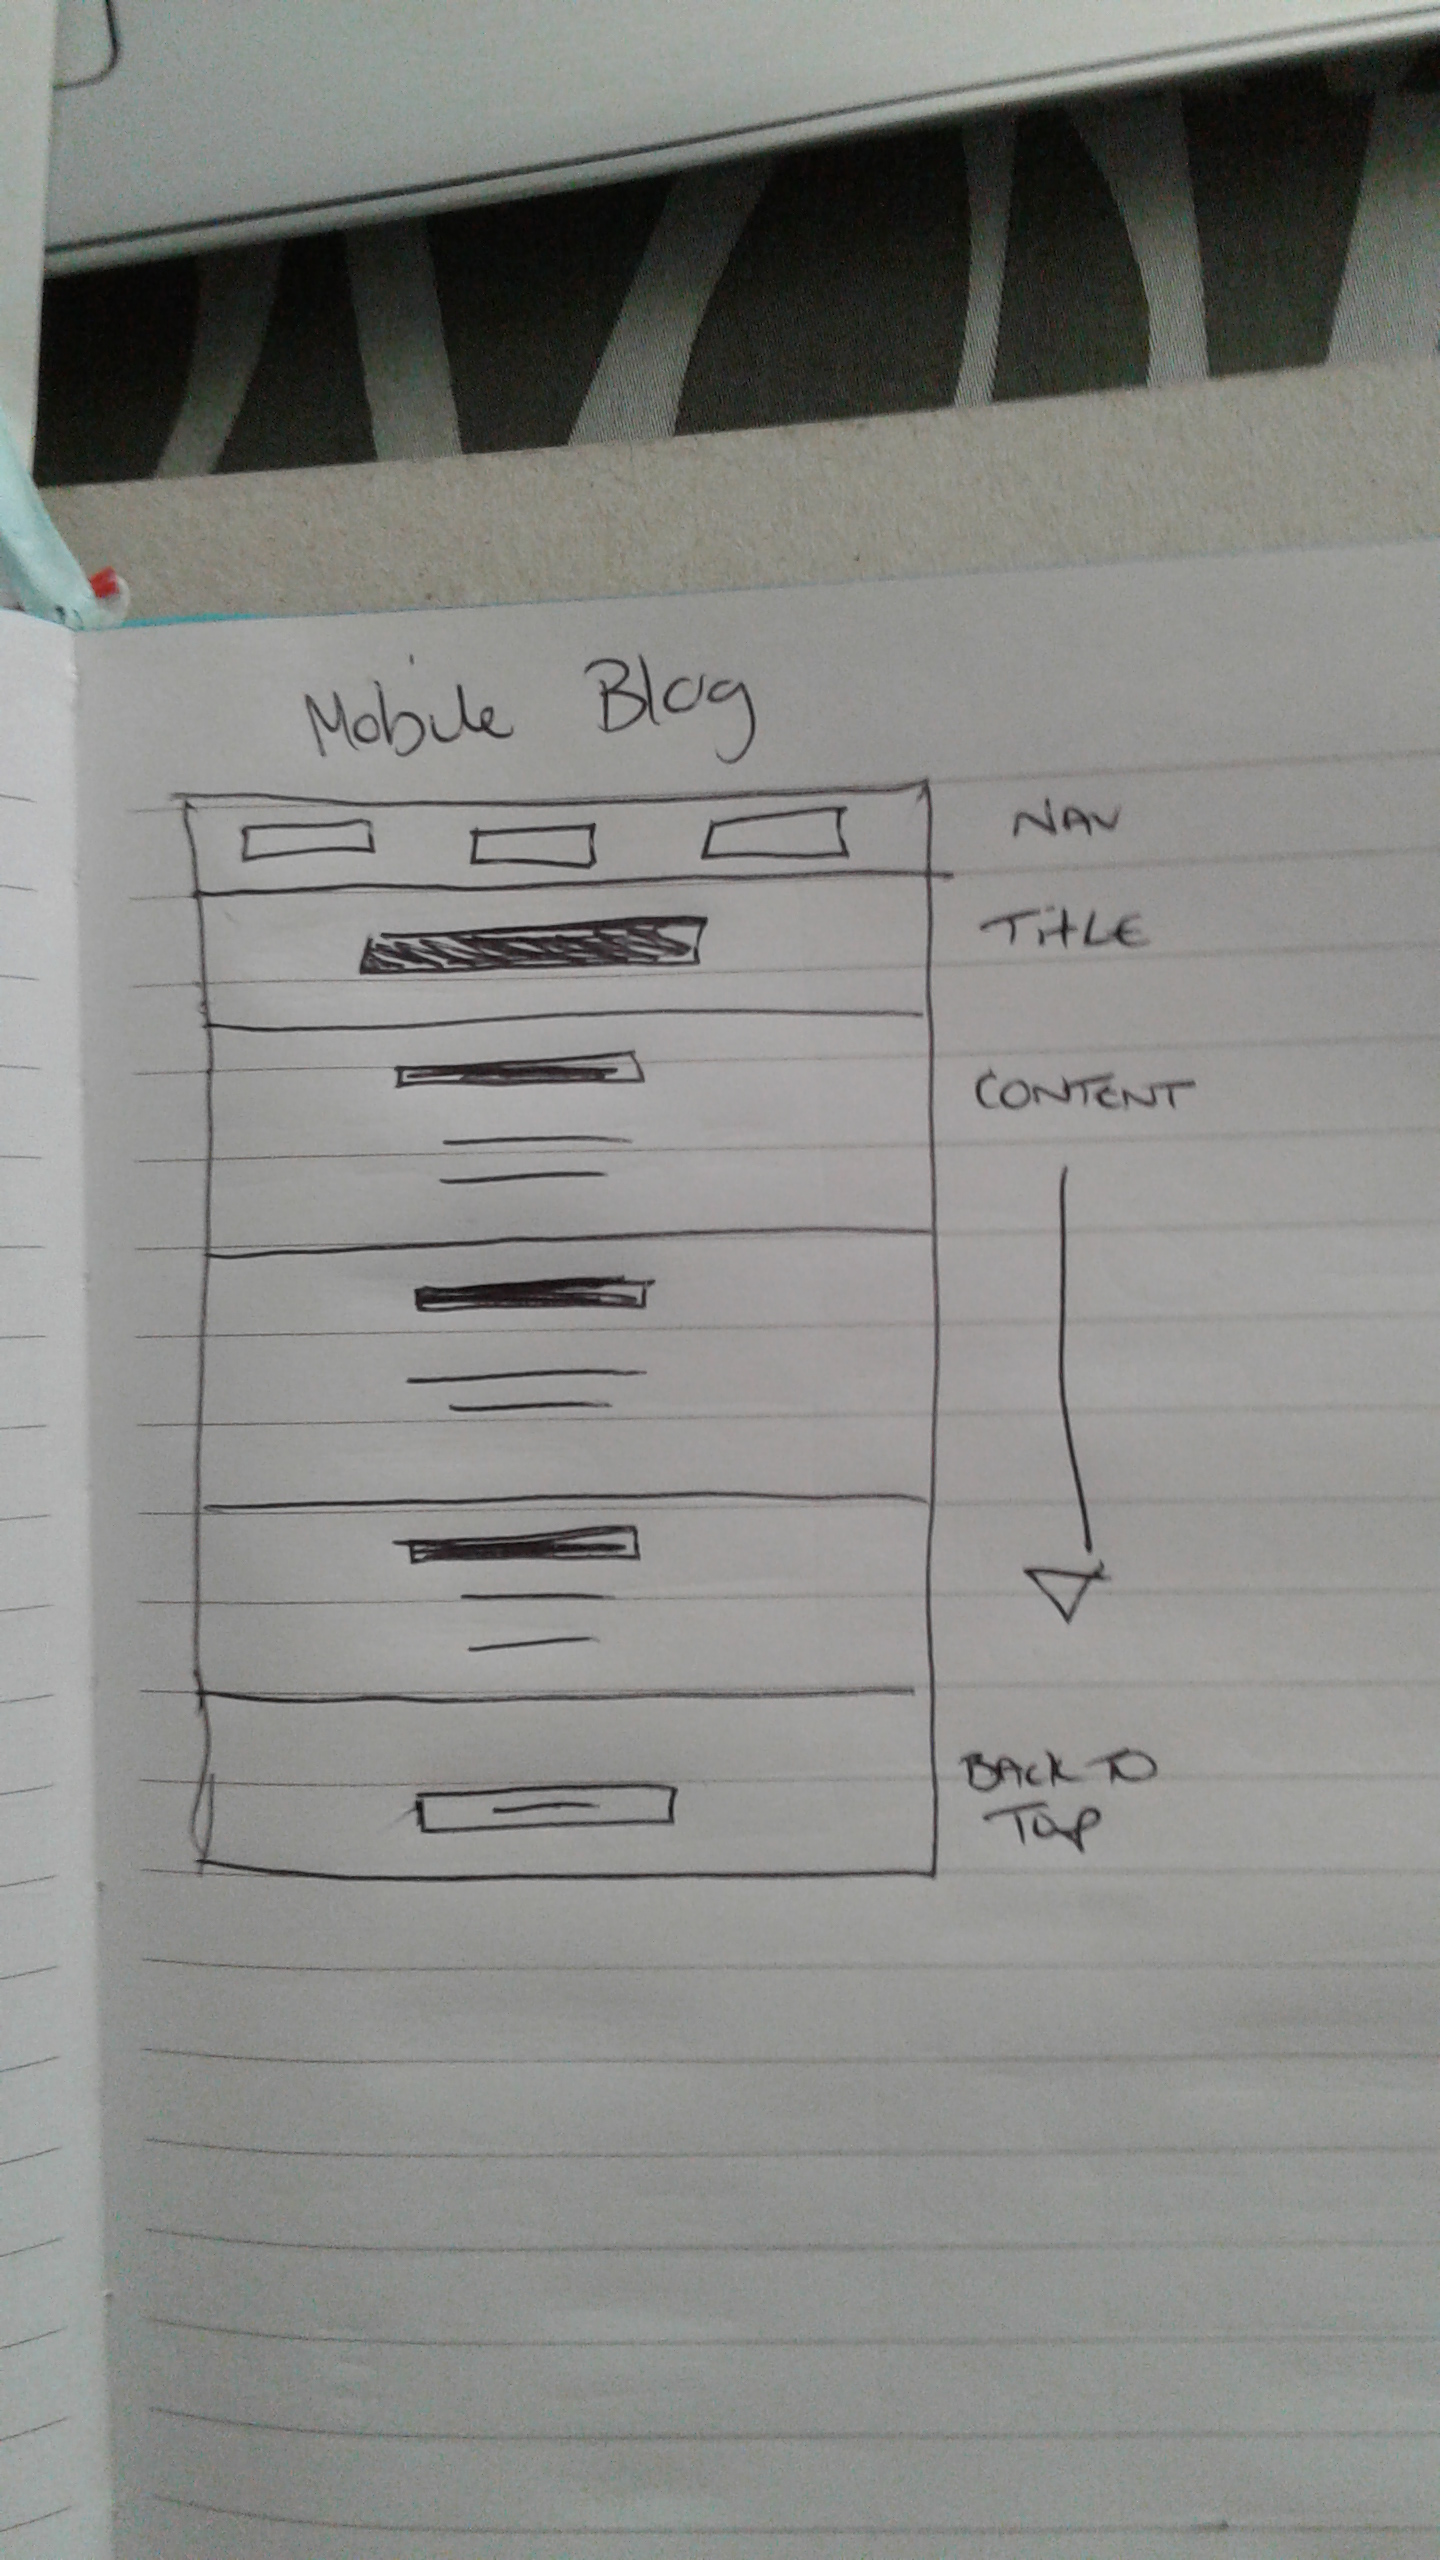 Mobile Blog
NAV
TITLE
CONTENT
BACK TO
TOP